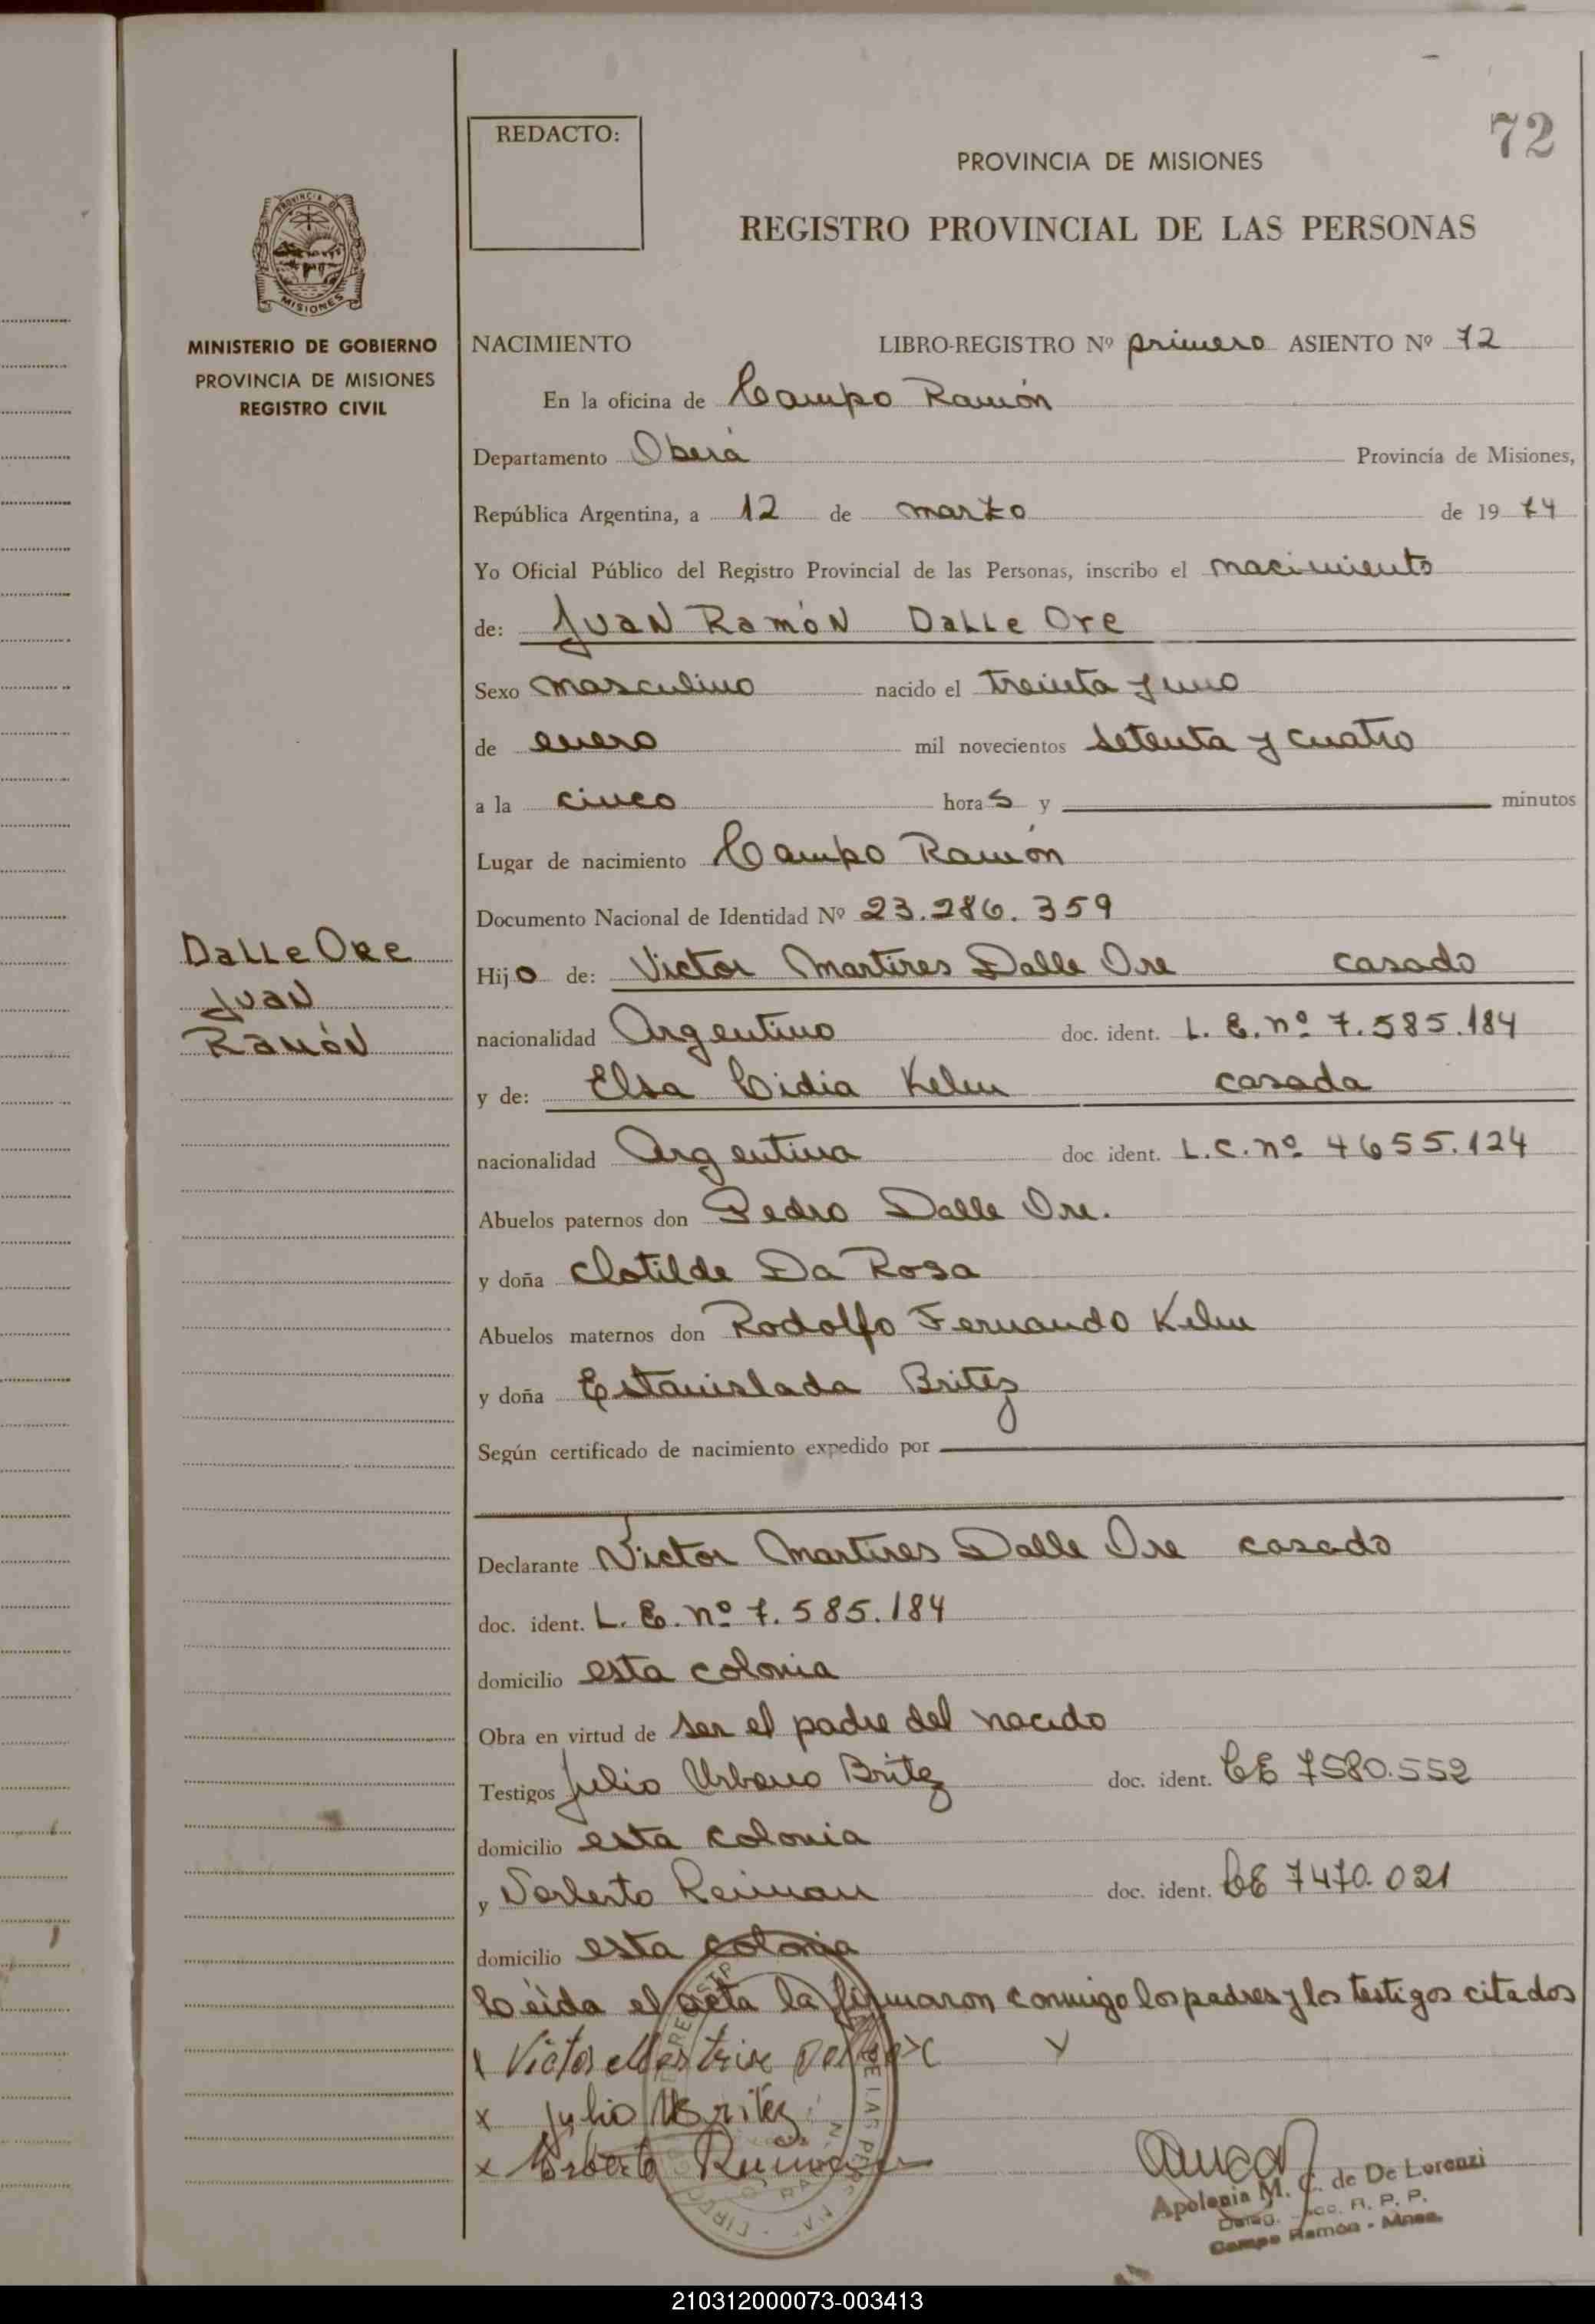 72
REDACTO:
PROVINCIA DE MISIONES
REGISTRO PROVINCIAL DE LAS PERSONAS
PROVINCIA DE
MISIONES
MINISTERIO DE GOBIERNO
PROVINCIA DE MISIONES
REGISTRO CIVIL
NACIMIENTO LIBRO-REGISTRO Nº primero ASIENTO Nº 72
En la oficina de Campo Ramón
Departamento Oberá Provincia de Misiones,
República Argentina, a 12 de marzo de 19 74
Yo Oficial Público del Registro Provincial de las Personas, inscribo el nacimiento
de: Juan Ramón Dalle Ore
Sexo masculino nacido el treinta y uno
de enero mil novecientos setenta y cuatro
a la cinco horas y minutos
Lugar de nacimiento Campo Ramón
Documento Nacional de Identidad Nº 23.286.359
Dalle Ore
Juan
Ramón
Hijo de: Victor Martires Dalle Ore casado
nacionalidad Argentino doc. ident. L. E. nº 7.585.184
y de: Elsa Lidia Kelm casada
nacionalidad Argentina doc ident. L.C. nº 4655.124
Abuelos paternos don Pedro Dalle Ore.
y doña Clotilde Da Rosa
Abuelos maternos don Rodolfo Fernando Kelm
y doña Estanislada Britez
Según certificado de nacimiento expedido por
Declarante Victor Martires Dalle Ore casado
doc. ident. L. E. nº 7.585.184
domicilio esta colonia
Obra en virtud de ser el padre del nacido
Testigos Julio Urbano Britez doc. ident. LE 7580.552
domicilio esta colonia
y Norberto Reiman doc. ident. LE 7470.021
domicilio esta colonia
Leida el acta la firmaron conmigo los padres y los testigos citados
x Victor Martire
x Julio Britez
x
Apolonia M. C. de De Lorenzi
R. P. P.
Campo Ramón - Mnes.
210312000073-003413